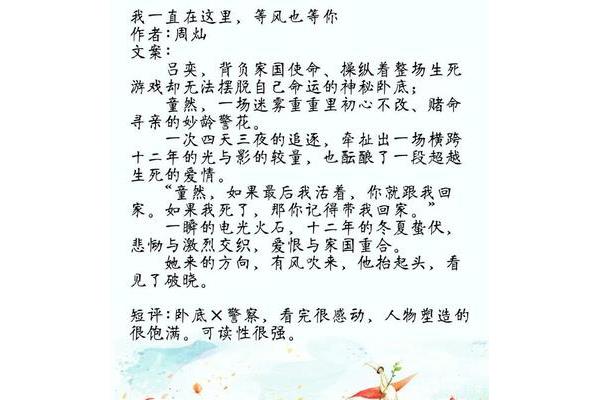 我一直在这里，等风也等你
作者:周灿
文案:
吕奕，背负家国使命、操纵着整场生死
游戏却无法摆脱自己命运的神秘卧底；
童然，一场迷雾重重里初心不改、赌命
寻亲的妙龄警花。
一次四天三夜的追逐，牵扯出一场横跨
十二年的光与影的较量，也酝酿了一段超越
生死的爱情。
“童然，如果最后我活着，你就跟我回
家。如果我死了，那你记得带我回家。”
一瞬的电光火石，十二年的冬夏蛰伏，
悲恸与激烈交织，爱恨与家国重合。
她来的方向，有风吹来，他抬起头，看
见了破晓。
短评:卧底×警察，看完很感动，人物塑造的
很饱满。可读性很强。